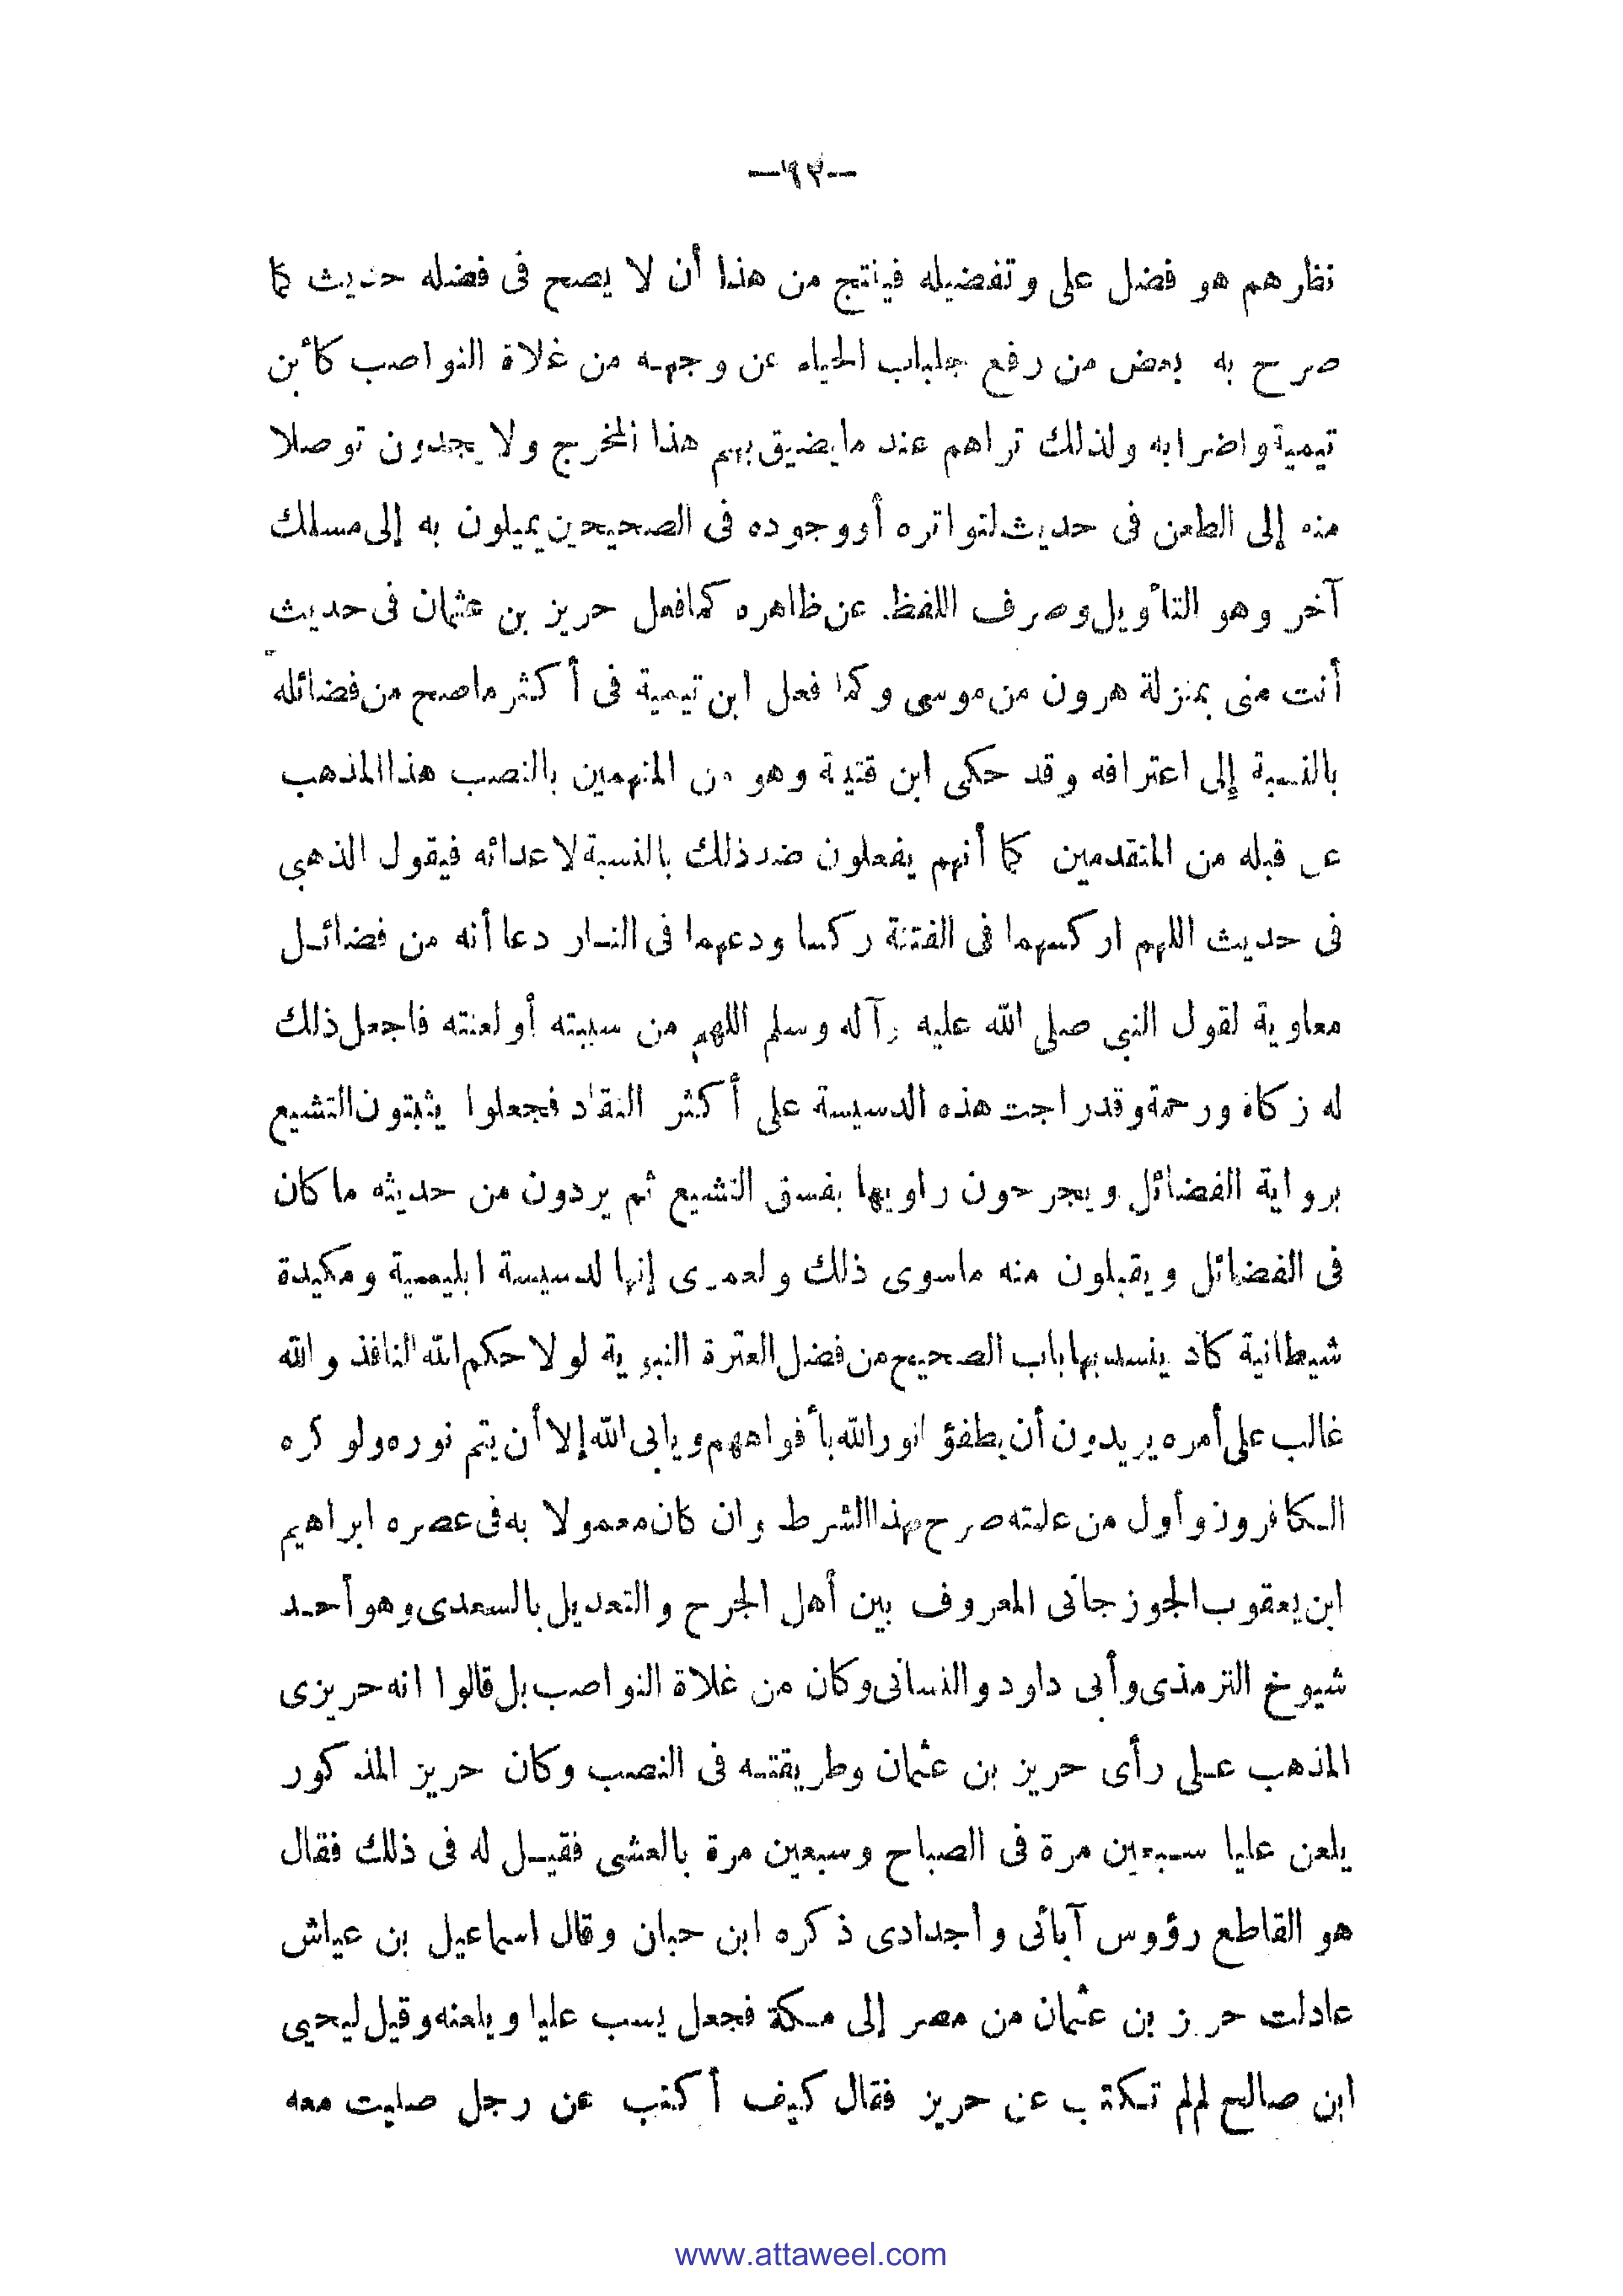 —٩٣—
نظرهم هو فضل على وتفضيله فينتج من هذا أن لا يصح فى فضله حديث كما
صرح به بعض من رفع جلباب الحياء عن وجهه من غلاة النواصب كأبن
تيمية واضرابه ولذلك تراهم عند ما يضيق بهم هذا المخرج ولا يجدون توصلا
منه إلى الطعن فى حديث لتواتره أو وجوده فى الصحيحين يميلون به إلى مسلك
آخر وهو التأويل وصرف اللفظ عن ظاهره كما فعل حريز بن عثمان فى حديث
أنت منى بمنزلة هرون من موسى وكما فعل ابن تيمية فى أكثر ما صح من فضائله
بالنسبة إلى اعترافه وقد حكى ابن قتيبة وهو من المتهمين بالنصب هذا المذهب
عن قبله من المتقدمين كما أنهم يفعلون ضد ذلك بالنسبة لاعدائه فيقول الذهبى
فى حديث اللهم اركسهما فى الفتنة ركسا ودعهما فى النار دعا أنه من فضائل
معاوية لقول النبى صلى الله عليه وآله وسلم اللهم من سببته أو لعنته فاجعل ذلك
له زكاة ورحمة وقد راجت هذه الدسيسة على أكثر النقاد فجعلوا يثبتون التشيع
برواية الفضائل ويجرحون راويها بفسق التشيع ثم يردون من حديثه ما كان
فى الفضائل ويقبلون منه ما سوى ذلك ولعمرى إنها لدسيسة ابليسية ومكيدة
شيطانية كاد ينسد بها باب الصحيح من فضل العترة النبوية لولا حكم الله النافذ والله
غالب على أمره يريدون أن يطفؤا نور الله بأفواههم ويابى الله إلا أن يتم نوره ولو كره
الكافرون وأول من علمته صرح بهذا الشرط وان كان معمولا به فى عصره ابراهيم
ابن يعقوب الجوزجانى المعروف بين أهل الجرح والتعديل بالسعدى وهو أحد
شيوخ الترمذى وأبى داود والنسائى وكان من غلاة النواصب بل قالوا انه حريزى
المذهب على رأى حريز بن عثمان وطريقته فى النصب وكان حريز المذكور
يلعن عليا سبعين مرة فى الصباح وسبعين مرة بالعشى فقيل له فى ذلك فقال
هو القاطع رؤوس آبائى واجدادى ذكره ابن حبان وقال اسماعيل بن عياش
عادلت حريز بن عثمان من مصر إلى مكة فجعل يسب عليا ويلعنه وقيل ليحيى
ابن صالح لم لم تكتب عن حريز فقال كيف أكتب عن رجل صليت معه
www.attaweel.com